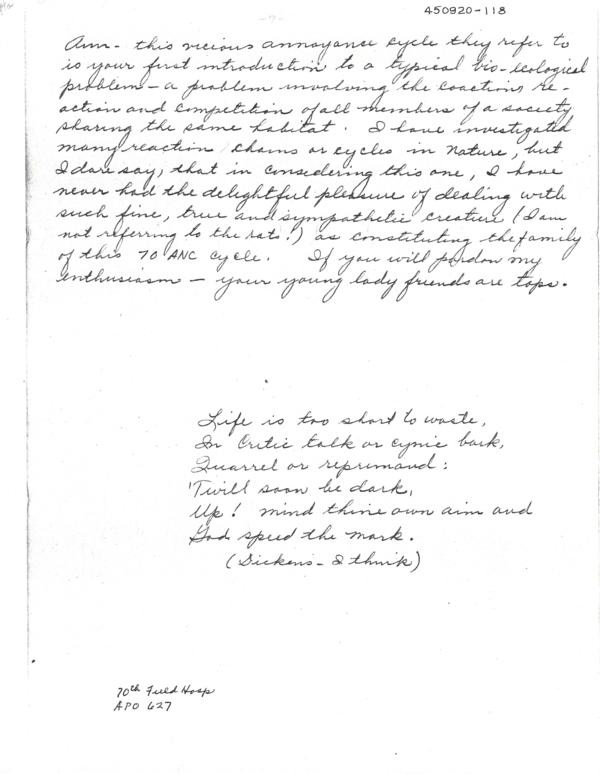 450920-118
Ann - this vicious annoyance cycle they refer to
is your first introduction to a typical bio-ecological
problem - a problem involving the coaction, re-
action and competition of all members of a society
sharing the same habitat. I have investigated
many reaction chains or cycles in nature, but
I dare say, that in considering this one, I have
never had the delightful pleasure of dealing with
such fine, true and sympathetic creature (I am
not referring to the rats!) as constituting the family
of this 70 ANC cycle. If you will pardon my
enthusiasm - your young lady friends are tops.
Life is too short to waste,
In critic talk or cynic bark,
Quarrel or reprimand:
'Twill soon be dark,
Up! mind thine own aim and
God speed the mark.
(Dickens - I think)
70th Field Hosp
APO 627